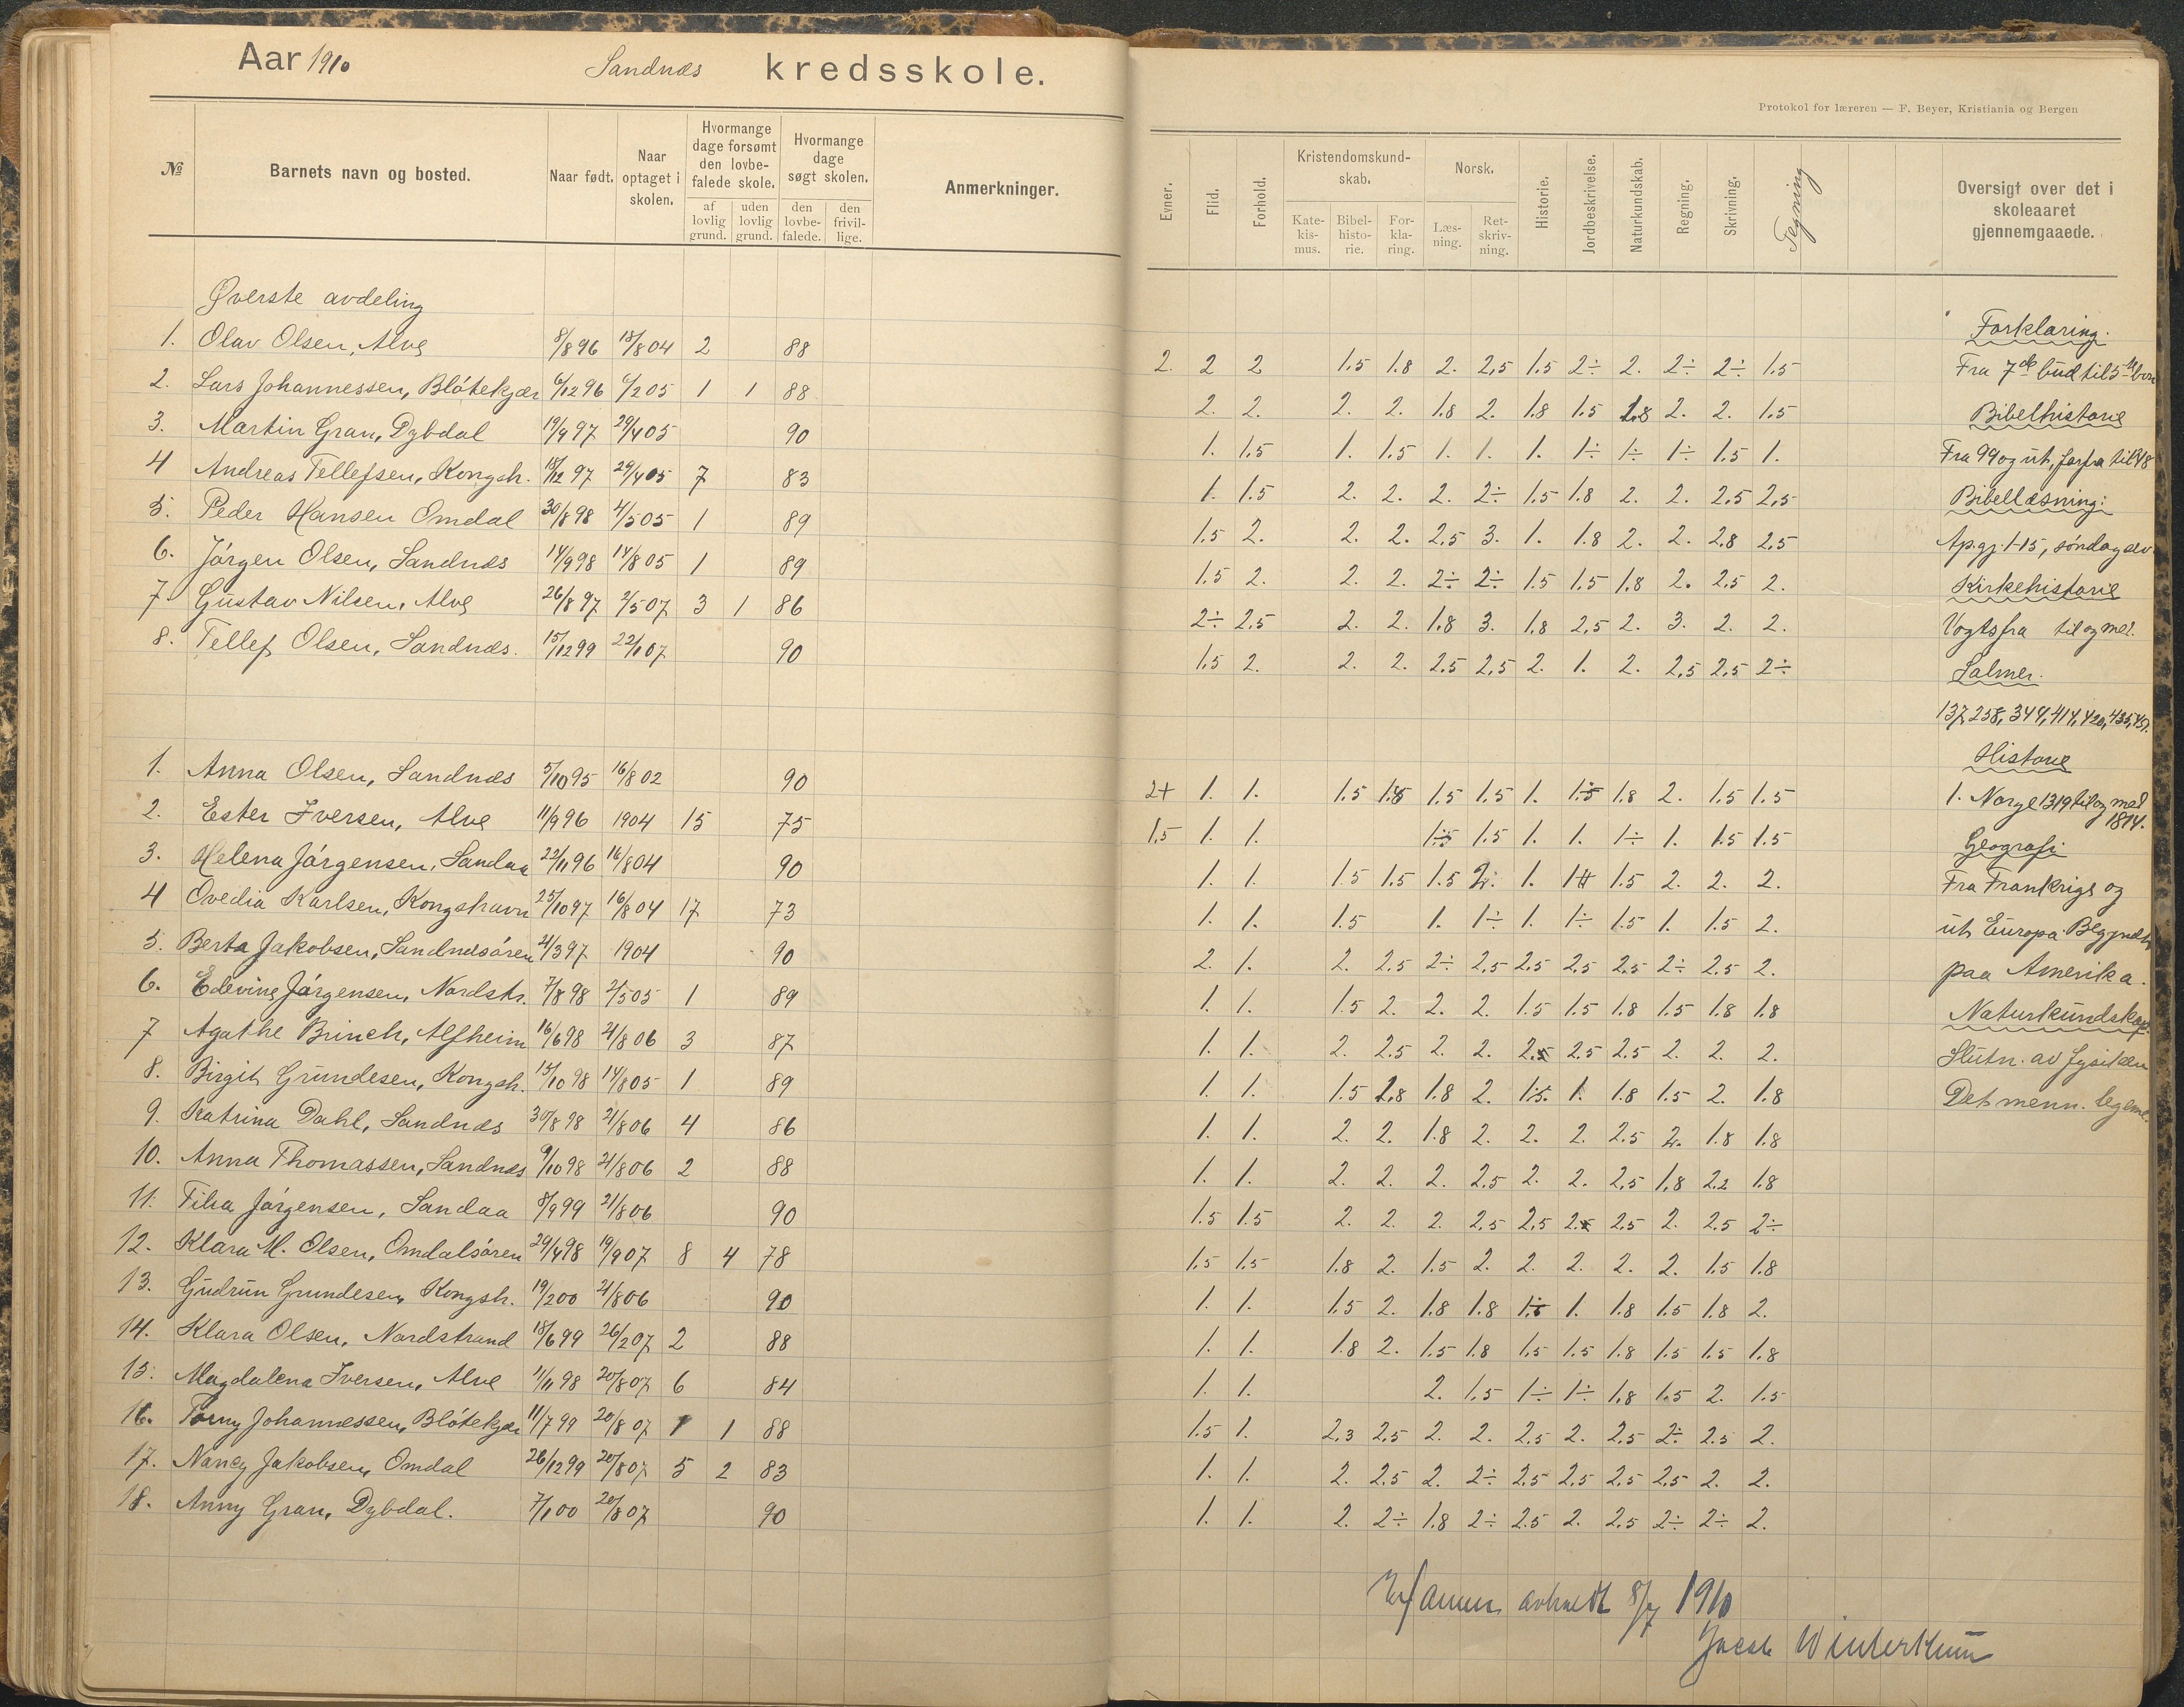 Aar 1910 Sandnæs kredsskole.
Protokol for læreren — F. Beyer, Kristiania og Bergen
№ Barnets navn og bosted. Naar født. Naar optaget i skolen. Hvormange dage forsømt den lovbefalede skole. af lovlig grund. uden lovlig grund. Hvormange dage søgt skolen. den lovbefalede. den frivillige. Anmerkninger.
Evner. Flid. Forhold. Kristendomskundskab. Katekismus. Bibelhistorie. Forklaring. Norsk. Læsning. Retskrivning. Historie. Jordbeskrivelse. Naturkundskab. Regning. Skrivning. Tegning Oversigt over det i skoleaaret gjennemgaaede.
Øverste avdeling
1. Olav Olsen, Alve 8/8 96 18/8 04 2 88
2. Lars Johannessen, Bløtekjær 6/12 96 6/2 05 1 1 88
3. Martin Gran, Dybdal 19/9 97 29/4 05 90
4 Andreas Tellefsen, Kongsh. 18/12 97 29/4 05 7 83
5. Peder Hansen Omdal 30/8 98 4/5 05 1 89
6. Jørgen Olsen, Sandnæs 14/9 98 14/8 05 1 89
7. Gustav Nilsen, Alve 26/8 97 2/5 07 3 1 86
8. Tellef Olsen, Sandnæs. 15/12 99 22/1 07 90
1. Anna Olsen, Sandnæs 5/10 95 16/8 02 90
2. Ester Iversen, Alve 11/9 96 1904 15 75
3. Helena Jørgensen, Sandaa 22/11 96 16/8 04 90
4 Ovedia Karlsen, Kongshavn 25/10 97 16/8 04 17 73
5. Berta Jakobsen, Sandnæsøren 21/3 97 1904 90
6. Edevine Jørgensen, Nordstr. 7/8 98 2/5 05 1 89
7 Agathe Brinch, Alfheim 16/6 98 21/8 06 3 87
8. Birgit Grundesen, Kongsh. 15/10 98 14/8 05 1 89
9. Katrina Dahl, Sandnæs 30/8 98 21/8 06 4 86
10. Anna Thomassen, Sandnæs 9/10 98 21/8 06 2 88
11. Tilia Jørgensen, Sandaa 8/9 99 21/8 06 90
12. Klara M. Olsen, Omdalsøren 29/4 98 19/9 07 8 4 78
13. Gudrun Grundesen, Kongsh. 19/2 00 21/8 06 90
14. Klara Olsen, Nordstrand 18/6 99 26/2 07 2 88
15. Magdalena Iversen, Alve 11/11 98 20/8 07 6 84
16. Tomy Johannessen, Bløtekjær 11/7 99 20/8 07 1 1 88
17. Nancy Jakobsen, Omdal 26/12 99 20/8 07 5 2 83
18. Anny Gran, Dybdal. 7/1 00 20/8 07 90
2. 2 2 1.5 1.8 2. 2.5 1.5 2÷ 2. 2÷ 2÷ 1.5
2. 2. 2. 2. 1.8 2. 1.8 1.5 1.8 2. 2. 1.5
1. 1.5 1. 1.5 1. 1. 1. 1÷ 1÷ 1÷ 1.5 1.
1. 1.5 2. 2. 2. 2÷ 1.5 1.8 2. 2. 2.5 2.5
1.5 2. 2. 2. 2.5 3. 1. 1.8 2. 2. 2.8 2.5
1.5 2. 2. 2. 2÷ 2÷ 1.5 1.5 1.8 2. 2.5 2.
2÷ 2.5 2. 2. 1.8 3. 1.8 2.5 2. 3. 2. 2.
1.5 2. 2. 2. 2.5 2.5 2. 1. 2. 2.5 2.5 2÷
2+ 1. 1. 1.5 1.8 1.5 1.5 1. 1.5 1.8 2. 1.5 1.5
1.5 1. 1. 1.5 1.5 1. 1. 1÷ 1. 1.5 1.5
1. 1. 1.5 1.5 1.5 2. 1. 1 1.5 2. 2. 2.
1. 1. 1.5 1. 1÷ 1. 1÷ 1.5 1. 1.5 2.
2. 1. 2. 2.5 2÷ 2.5 2.5 2.5 2.5 2÷ 2.5 2.
1. 1. 1.5 2. 2. 2. 1.5 1.5 1.8 1.5 1.8 1.8
1. 1. 2. 2.5 2. 2. 2.5 2.5 2.5 2. 2. 2.
1. 1. 1.5 1.8 1.8 2. 1.5. 1. 1.8 1.5 2. 1.8
1. 1. 2. 2. 1.8 2. 2. 2. 2.5 2. 1.8 1.8
1. 1. 2. 2. 2. 2.5 2. 2. 2.5 1.8 2.2 1.8
1.5 1.5 2. 2. 2. 2.5 2.5 2.5 2.5 2. 2.5 2÷
1.5 1.5 1.8 2. 1.5 2. 2. 2. 2. 2. 1.5 1.8
1. 1. 1.5 2. 1.8 1.8 1÷ 1. 1.8 1.5 1.8 2.
1. 1. 1.8 2. 1.5 1.8 1.5 1.5 1.8 1.5 1.5 1.8
1. 1. 2. 1.5 1÷ 1÷ 1.8 1.5 2. 1.5
1.5 1. 2.3 2.5 2. 2. 2.5 2. 2.5 2÷ 2.5 2.
1. 1. 2. 2.5 2. 2÷ 2.5 2.5 2.5 2.5 2. 2.
1. 1. 2. 2÷ 1.8 2÷ 2.5 2. 2.5 2÷ 2÷ 2.
Forklaring.
Fra 7de bud til 5te bøn
Bibelhistorie
Fra 99 og ut, forfra til 48
Bibellæsning:
Ap.gj. 1-15, søndagsev
Kirkehistorie
Vogts fra til og med.
Salmer.
137, 258, 344, 414, 420, 435, 451.
Historie
1. Norge 1319 til og med
1814.
Geografi
Fra Frankrige og
ut Europa. Begyndt
paa Amerika.
Naturkundskap.
Slutn. av fysiken
Det menn. legeme.
avholdt 8/7 1910
Jacob